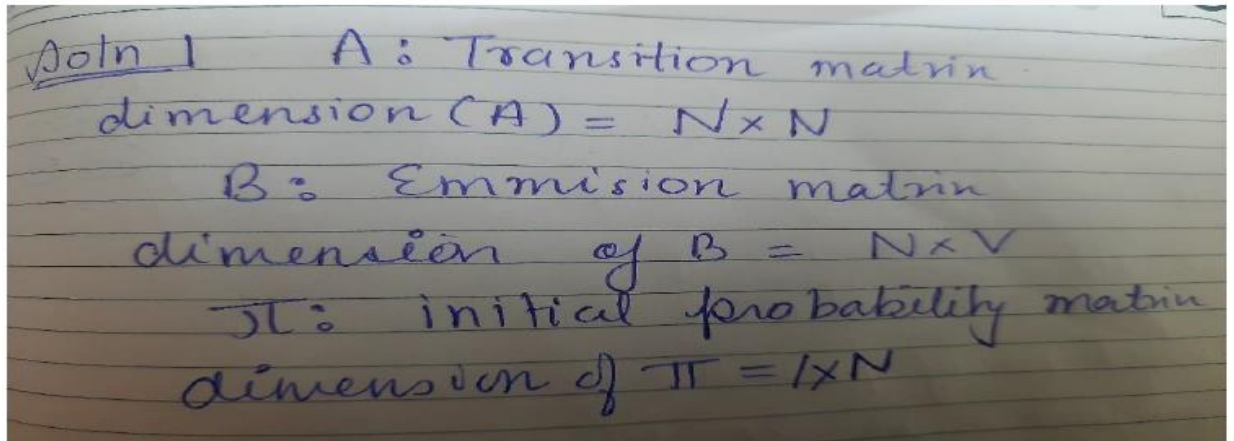 Soln 1 A: Transition matrix
dimension (A) = N×N
B: Emmision matrix
dimension of B = N×V
π: initial probability matrix
dimension of π = 1×N